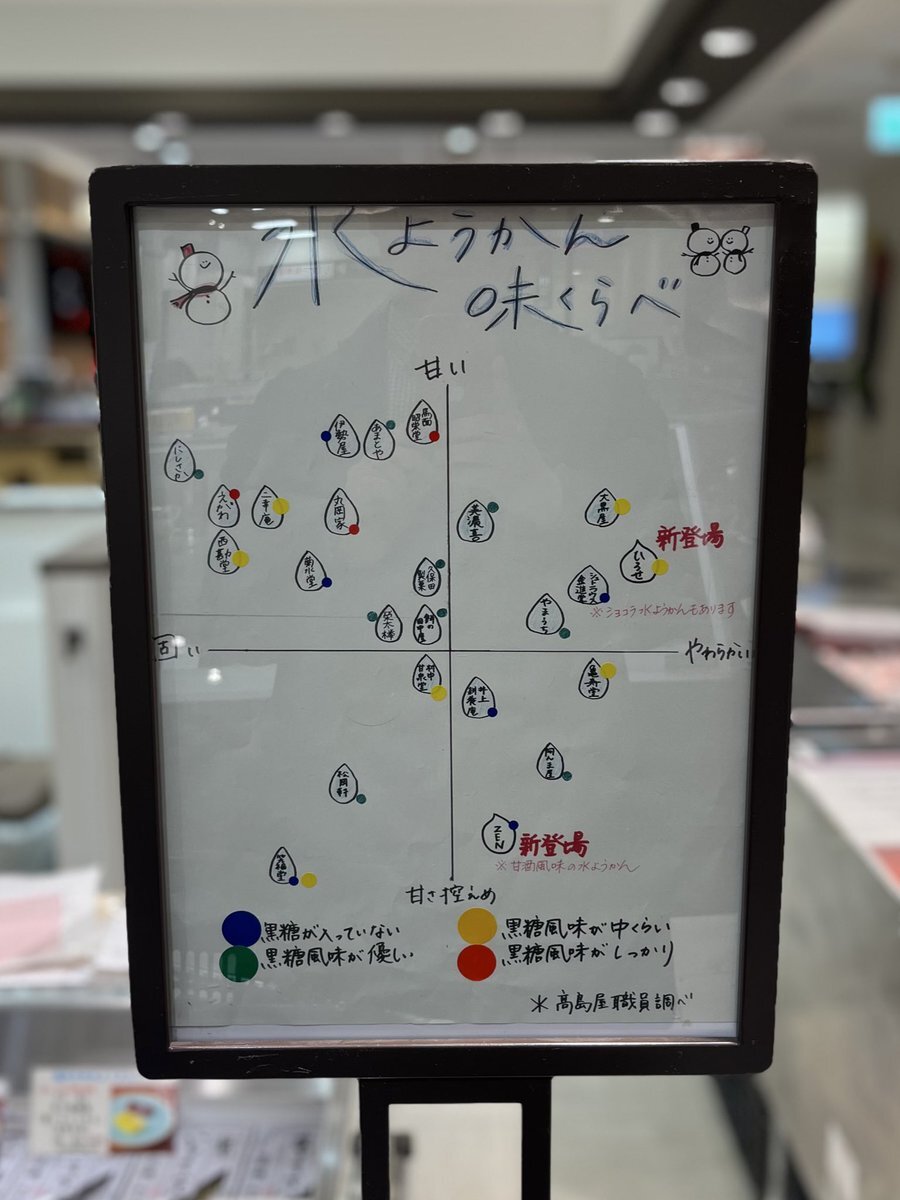 水ようかん
味くらべ
甘い
馬面
昭栄堂
伊勢屋
あまとや
にしさか
えがわ
二幸庵
九岡家
美濃喜
大黒屋
新登場
西勘堂
ひろせ
菊水堂
久保田
製菓
シュトラウス
金進堂
※ショコラ水ようかんもあります
やまうち
栄太樓
餅の
田中屋
固い
やわらかい
村中
甘泉堂
亀寿堂
井上
耕養庵
阿んま屋
松岡軒
ZEN
新登場
※甘酒風味の水ようかん
笑福堂
甘さ控えめ
黒糖が入っていない
黒糖風味が中くらい
黒糖風味が優しい
黒糖風味がしっかり
＊高島屋職員調べ